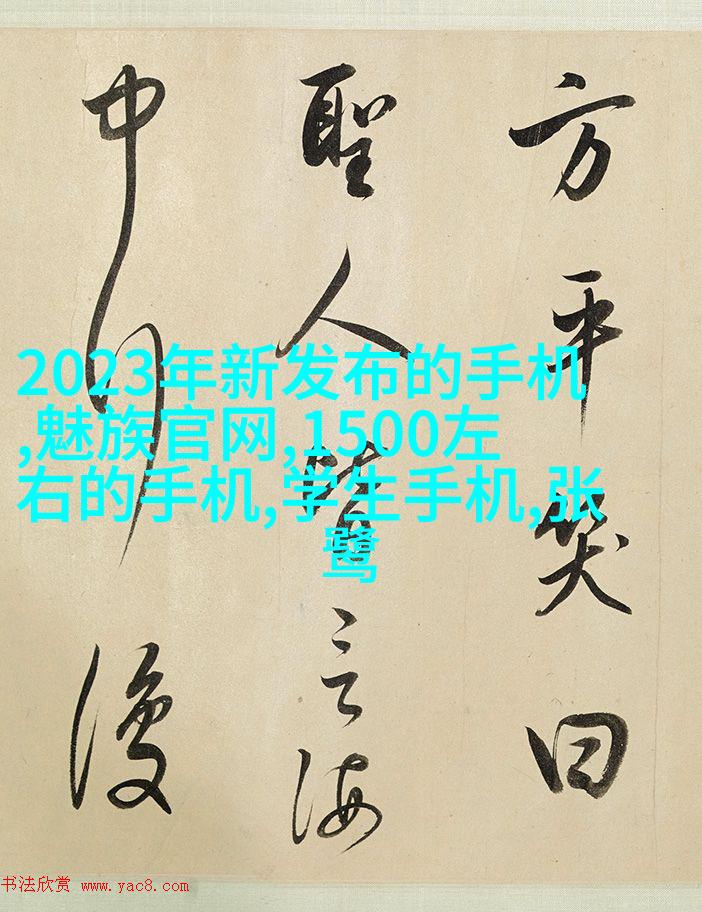 方平笑曰
聖人皆言海
中行復
2023年新发布的手机
,魅族官网,1500左
右的手机,学生手机,张
鹭
书法欣赏 www.yac8.com